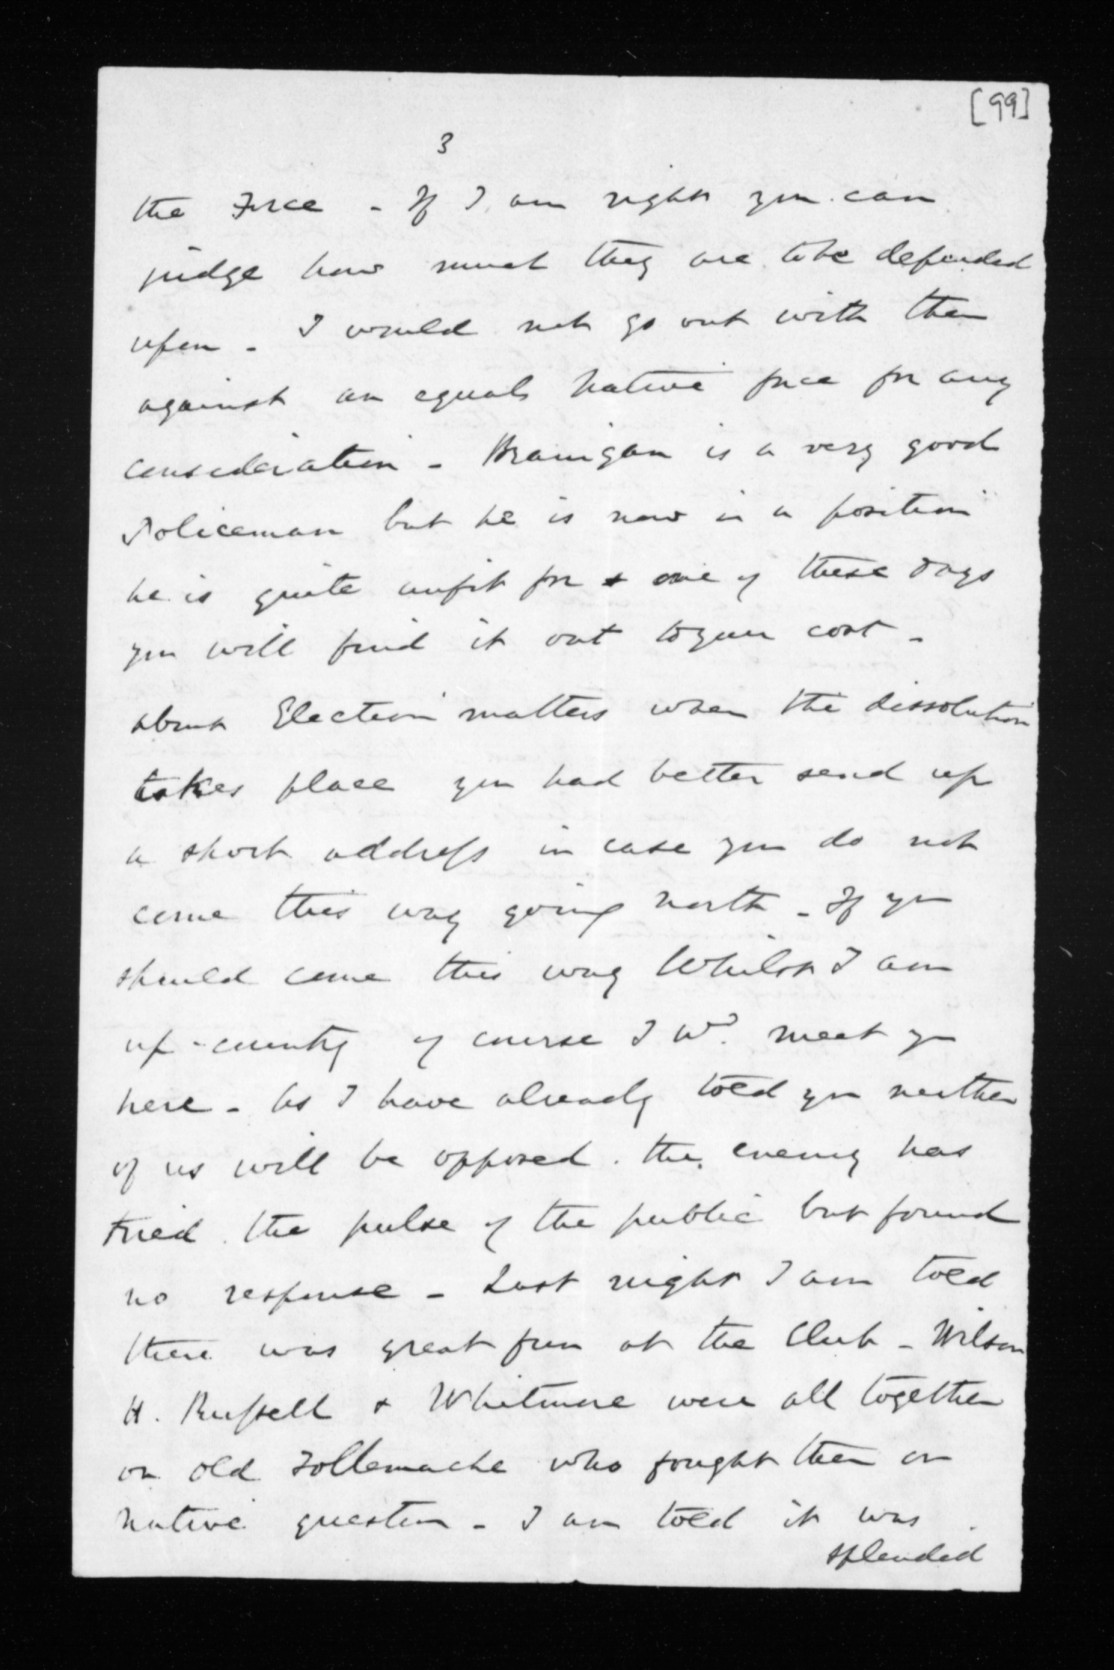 [99]
3
the Force - If I am right you can
judge how much they are to be depended
upon - I would not go out with them
against an equal Native force for any
consideration - Branigan is a very good
Policeman but he is now in a position
he is quite unfit for & one of these days
you will find it out to your cost -
about Election matters when the dissolution
takes place you had better send up
a short address in case you do not
come this way going north - If you
should come this way Whilst I am
up-country of course I wd. meet you
here - As I have already told you neither
of us will be opposed. the enemy has
tried the pulse of the public but found
no response - Last night I am told
there was great fun at the Club - Wilson
H. Russell & Whitmore were all together
on old Tollemache who fought them on
native question - I am told it was
splendid